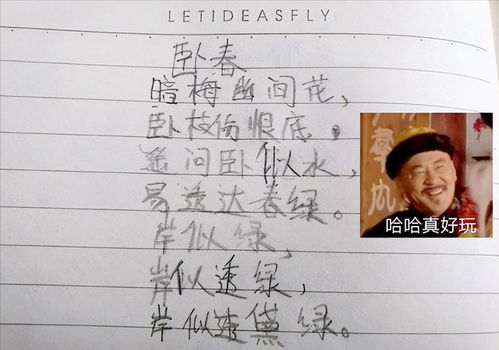 LETIDEASFLY
卧春
暗梅幽间花，
卧枝伤恨底，
遥问卧似水，
易透达春绿。
岸似绿，
岸似透绿，
岸似透黛绿。
哈哈真好玩